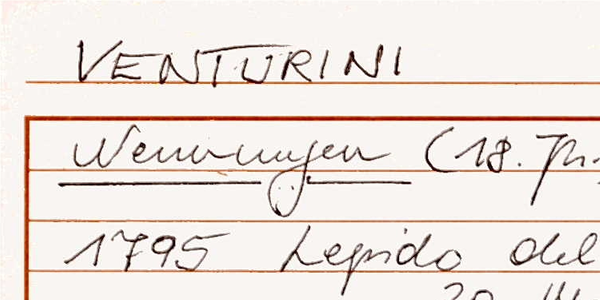 VENTURINI
Nennungen (18. Jh.
1795 Lepido del